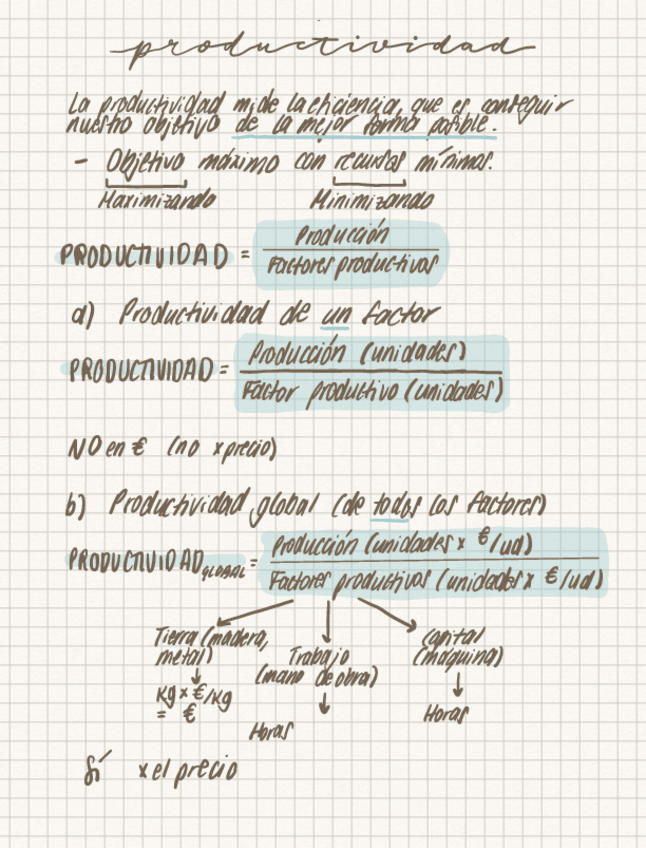 productividad
La productividad mide la eficiencia, que es conseguir
nuestro objetivo de la mejor forma posible.
- Objetivo máximo con recursos mínimos.
Maximizando Minimizando
PRODUCTIVIDAD = Producción
Factores productivos
a) Productividad de un factor
PRODUCTIVIDAD = Producción (unidades)
Factor productivo (unidades)
NO en € (no x precio)
b) Productividad global (de todos los factores)
PRODUCTIVIDAD GLOBAL = Producción (unidades x €/ud)
Factores productivos (unidades x €/ud)
Tierra (madera,
metal)
Kg x €/Kg
= €
Trabajo
(mano de obra)
Horas
capital
(máquina)
Horas
Sí x el precio